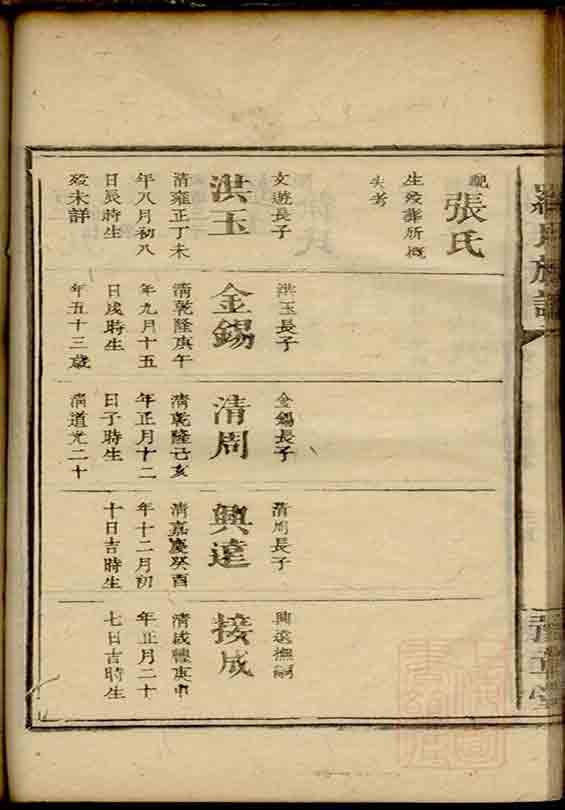 羅氏族譜
配張氏
生殁葬所概
失考
文遊長子
洪玉
清雍正丁未
年八月初八
日辰時生
殁未詳
洪玉長子
金錫
清乾隆庚午
年九月十五
日戌時生
年五十三歳
金錫長子
清周
清乾隆己亥
年正月十二
日子時生
清道光二十
清周長子
興達
清嘉慶癸酉
年十二月初
十日吉時生
興達撫嗣
接成
清咸豐庚申
年正月二十
七日吉時生